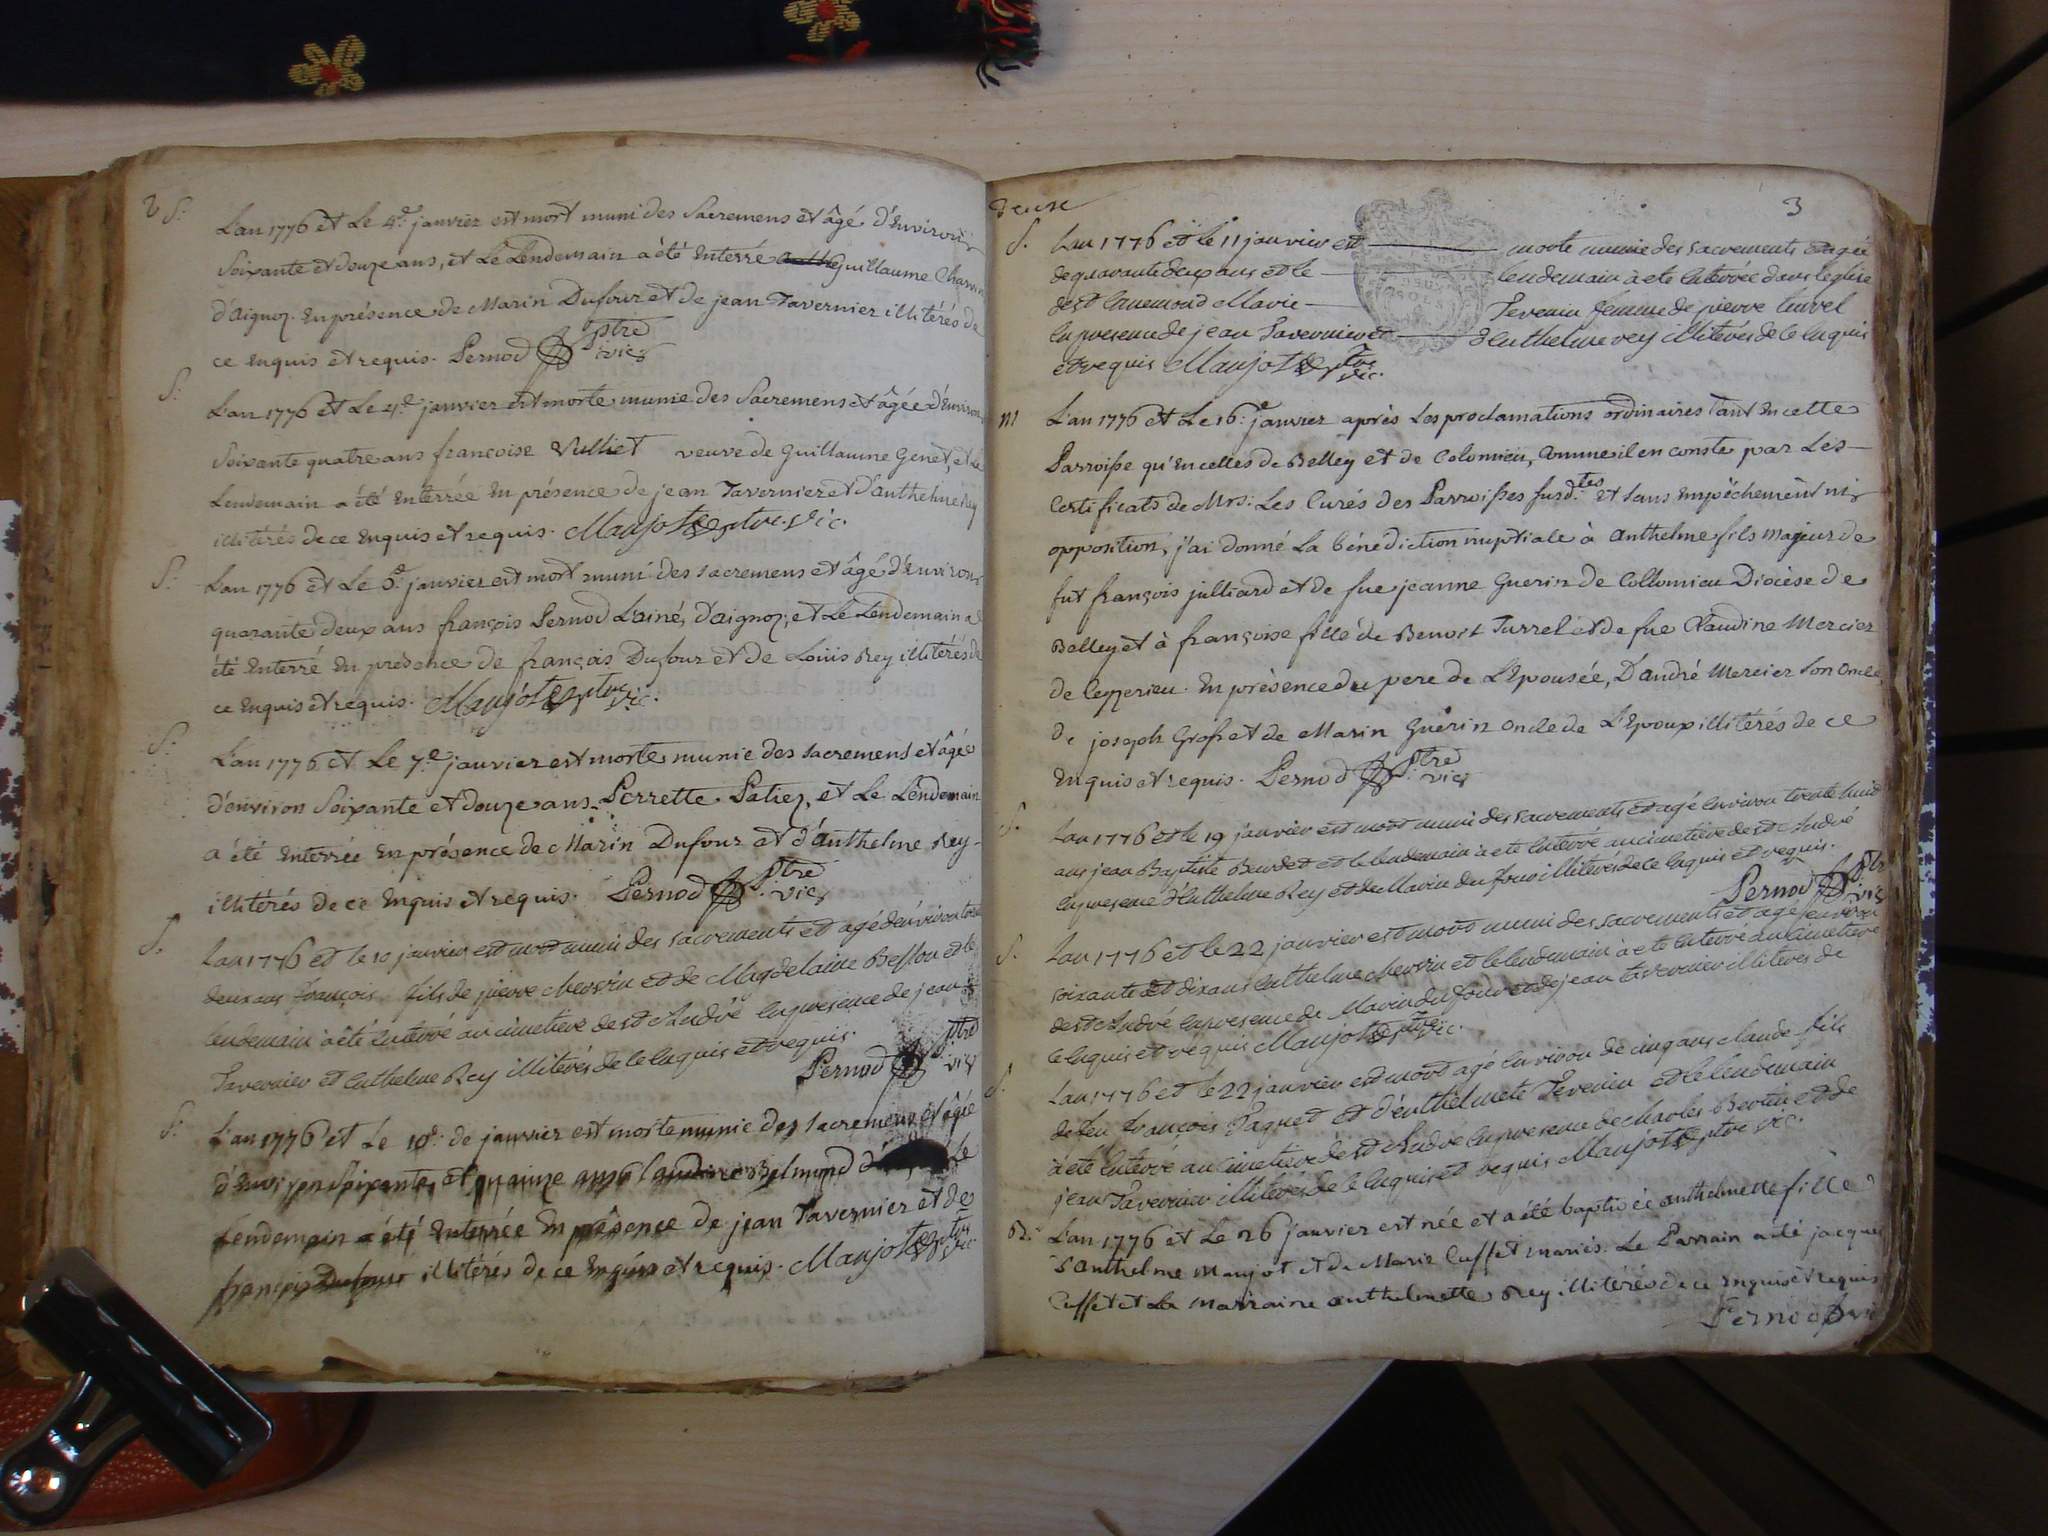 S.
L'an 1776 et Le 4.e janvier est mort muni des Sacremens et âgé d'Environ
Soixante et douze ans, et Le Lendemain a été Enterré Guillaume Charvin
d'aignoz. En présence de Marin Dufour et de jean Tavernier illitérés de
ce Enquis et requis. Pernod ptre vic.
S.
L'an 1776 et Le 4.e janvier est morte munie des Sacremens et âgée d'Environ
Soixante quatre ans francoise Vulliet veuve de Guillaume Genet, et Le
Lendemain a été Enterrée En présence de jean Tavernier et d'anthelme Rey
illitérés de ce Enquis et requis. Maujot ptre. vic.
S.
L'an 1776 et Le 5.e janvier est mort muni des sacremens et âgé d'Environ
quarante deux ans françois Pernod L'ainé, d'aignoz, et Le Lendemain a
été Enterré En présence de françois Dufour et de Loüis Rey illitérés de
ce Enquis et requis. Maujot ptre vic.
S.
L'an 1776 et Le 7.e janvier est morte munie des sacremens et âgée
d'environ Soixante et douze ans Perrette Patiez, et Le Lendemain
a été Enterrée En présence de Marin Dufour et d'anthelme Rey
illitérés de ce Enquis et requis. Pernod ptre vic.
S.
Lan 1776 et le 10 janvier est mort muni des sacrements et agé denviron
deux ans François fils de pierre Mervin et de Magdelaine Besson et le
lendemain à été Enterré au cimetiere de st André En presence de jean
Tavernier et Enthelme Rey illiterés de ce Enquis et requis.
Pernod ptre vic
S.
L'an 1776 et Le 10.e de janvier est morte munie des sacremens et âgée
d'Environ Soixante et quinze ans Claudine Belmond Le
Lendemain a été Enterrée En présence de jean Tavernier et de
françois Dufour illitérés de ce Enquis et requis. Maujot ptre vic
3
S.
Lan 1776 et le 11 janvier est morte munie des sacrements et agée
de quarante deux ans et le lendemain à ete Enterrée dans l'eglise
de st Enemond Marie Tevenin femme de pierre turrel
En presence de jean Tavernier et d'Enthelme rey illiterés de ce Enquis
et requis Maujot ptre vic.
M
L'an 1776 et Le 16.e janvier après Les proclamations ordinaires tant En cette
Parroisse qu'En celles de Belley et de Colomieu, Comme il en conste par Les
Certificats de Mrs. Les Curés des Parroisses susd.tes et sans Empêchement ni
opposition, j'ai donné La bénédiction nuptiale à anthelme fils majeur de
fut françois julliard et de fue jeanne Guerin de Collomieu Diocèse de
Belley et à françoise fille de Benoit Turrel et de fue Claudine Mercier
de Cezzerieu. En présence du pere de L'Epousée, D'andré Mercier son oncle,
De joseph Gros et de Marin Guérin oncle de L'Epoux illitérés de ce
Enquis et requis. Pernod ptre vic
S.
Lan 1776 et le 19 janvier est mort muni des sacrements et agé Environ trente huit
ans jean Baptiste Burdet et le lendemain à ete Enterré au cimetiere de st André
En presence d'Enthelme Rey et de Marin du four illiterés de ce Enquis et requis.
Pernod ptre vic
S.
Lan 1776 et le 22 janvier est mort muni des sacrements et agé Environ
soixante et dix ans Enthelme Mervin et le lendemain à ete Enterré au cimetiere
de st André En presence de Marin du four et de jean tavernier illiterés de
ce Enquis et requis Maujot ptre vic.
S.
Lan 1776 et le 22 janvier est mort agé Environ de cinq ans claude fils
de feu François Paquet et d'Enthelmete Tevenin et le lendemain
à ete Enterré au Cimetiere de st André En presence de charles Bertin et de
jean Tavernier illiterés de ce Enquis et requis Maujot ptre vic.
B.
L'an 1776 et Le 26 janvier est née et a été baptisée anthelmette fille
d'Anthelme Maujot et de Marie Cuffet mariés. Le Parrain a été jacques
Cuffet et La Marraine anthelmette Rey illitérés de ce Enquis et requis
Pernod vic